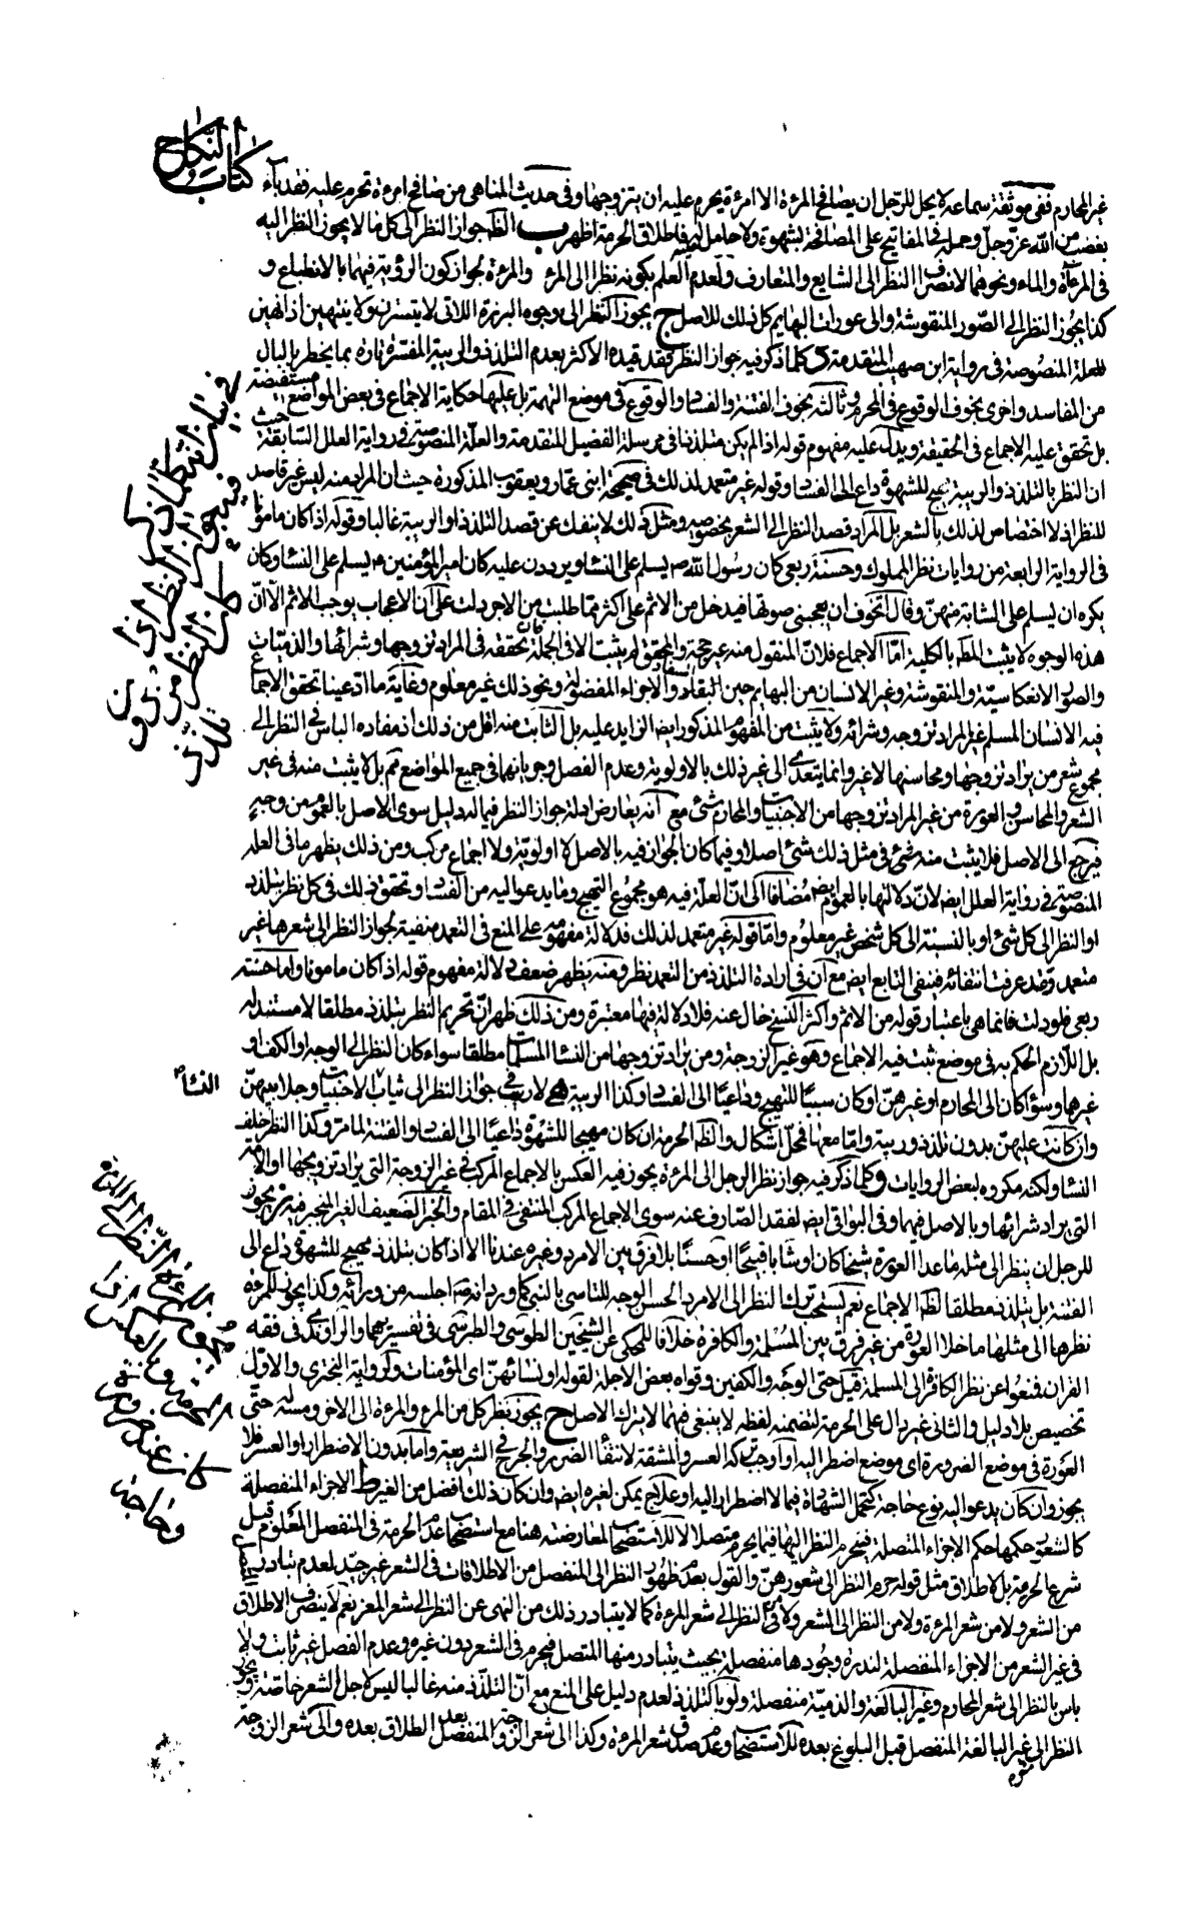 كتاب النكاح
غير المحارم ففى موثقة سماعه لا يحل للرّجل ان يصافح المرءة الا امرءة يحرم عليه ان يتزوجها وفى حديث المناهى من صافح امرءة تحرم عليه فقد باء
بغضب من الله عزّ وجلّ وحمله فى المفاتيح على المصافحة بشهوة ولا حامل له فاطلاق الحرمة اظهر ب الظ جواز النظر الى كل ما لا يجوز النظر اليه
فى المرءاة والماء ونحوهما لانصراف النظر الى الشايع والمتعارف ولعدم العلم بكونه نظرا الى المرء والمرءة لجواز كون الرؤية فيهما بالانطباع و
كذا يجوز النظر الى الصّور المنقوشة والى عورات البهايم كل ذلك للاصل ج يجوز النظر الى وجوه البرزة اللاتى لا يتسترن ولا ينتهين اذا نهين
للعلة المنصوصة فى رواية ابن صهيب المتقدمة د كلما ذكر فيه جواز النظر فقد قيده الاكثر بعدم التلذذ والريبة المفسّرة تارة بما يخطر بالبال
من المفاسد واخرى بخوف الوقوع فى المحرم وثالثه بخوف الفتنة والفساد والوقوع فى موضع التهمة بل عليها حكاية الاجماع فى بعض المواضع مستفيضة
بل تحقق عليه الاجماع فى الحقيقة ويدلّ عليه مفهوم قوله اذا لم يكن متلذذا فى مرسلة الفضيل المتقدمة والعلّة المنصوصة فى رواية العلل السّابقة حيث
ان النظر بالتلذذ والريبة مهيج للشهوة داع الى الفساد وقوله غير متعمد لذلك فى صحيحة ابنى عمار ويعقوب المذكورة حيث ان المراد منه ليس غير قاصد
للنظر اذ لا اختصاص لذلك بالشعر بل المراد قصد النظر الى الشعر بخصوصه ومثل ذلك لا ينفك عن قصد التلذذ او الريبة غالبا وقوله اذا كان مامونا
فى الرواية الرابعة من روايات نظر المملوك وحسنة ربعى كان رسول الله ص يسلم على النساء ويرددن عليه كان امير المؤمنين ع يسلم على النساء وكان
يكره ان يسلم على الشابة منهنّ وقال اتخوف ان يعجبنى صوتها فيدخل من الاثم على اكثر مما طلبت من الاجر دلت على ان الاعجاب يوجب الاثم الّا انّ
هذه الوجوه لا يثبت المط بالكلية امّا الاجماع فلانّ المنقول منه غير حجة والمحقق لم يثبت الا فى الجملة بان تحققه فى المراد تزوجها وشرائها والذميّات
والصور الانعكاسيّة والمنقوشة وغير الانسان من البهايم حين السفاد والاجزاء المنفصلة ونحو ذلك غير معلوم وغاية ما ادّعينا تحقق الاجماع
فيه الانسان المسلم غير المراد تزوجه وشرائه ولا يثبت من المفهوم المذكور ايض الزايد عليه بل الثابت منه اقل من ذلك اذ مفاده الباس فى النظر الى
مجموع شعر من يراد تزوجها ومحاسنها لا غير وانما يتعدى الى غير ذلك بالاولوية وعدم الفصل وجريانهما فى جميع المواضع مم بل لا يثبت منه فى غير
الشعر والمحاسن والعورة من غير المراد تزوجها من الاجنبيات والمحارم شئ مع انّه يعارض ادلة جواز النظر فيما له دليل سوى الاصل بالعموم من وجه
فيرجع الى الاصل فلا يثبت منه شئ فى مثل ذلك شئ اصلا وفيما كان الجواز فيه بالاصل لا اولويّة ولا اجماع مركب ومن ذلك يظهر ما فى العلة
المنصوصة فى رواية العلل ايض لانّ دلالتها بالعموم ايض مضافا الى انّ العلّة فيه هو مجموع التهيج وما يدعو اليه من الفساد وتحقق ذلك فى كل نظر بتلذذ
او النظر الى كل شئ او بالنسبة الى كل شخص غير معلوم وامّا قوله غير متعمد لذلك فدلالة مفهومه على المنع فى التعمد منفية لجواز النظر الى شعرها غير
متعمد وقد عرفت انتفائه فينفى التابع ايض مع ان فى ارادة التلذذ من التعمد نظر ومنه يظهر ضعف دلالة مفهوم قوله اذا كان مامونا واما حسنة
ربعى فلو دلت فانما هى باعتبار قوله من الاثم واكثر النسخ خال عنه فلا دلالة فيها معتبرة ومن ذلك ظهر انّ تحريم النظر بتلذذ مطلقا لا مستند له
بل اللازم الحكم به فى موضع ثبت فيه الاجماع وهو غير الزوجة ومن يراد تزوجها من النساء المسلمات مطلقا سواء كان النظر الى الوجه او الكف او
غيرهما وسواء كان الى المحارم او غيرهنّ او كان سببًا للتهيج وداعيًا الى الفساد وكذا الريبة ه لا ريب فى جواز النظر الى ثياب الاجنبيات وجلابيبهنّ النساء
وان كانت عليهنّ بدون تلذذ وريبة وامّا معها فمحلّ اشكال والظ الحرمة ان كان مهيجا للشهوة داعيًا الى الفساد والفتنة لما مر وكذا النظر خلف
النساء ولكنه مكروه لبعض الروايات و كلما ذكر فيه جواز نظر الرجل الى المرءة يجوز فيه العكس بالاجماع المركب فى غير الزوجة التى يراد تزويجها او الامة
التى يراد شرائها وبالاصل فيهما وفى البواقى ايض لفقد الصّارف عنه سوى الاجماع المركب المنتفى فى المقام والخبر الضعيف الغير المنجبر فيه ز يجوز
للرجل ان ينظر الى مثله ما عدا العورة شيخا كان او شابا قبيحًا او حسنًا بلا فرق بين الامرد وغيره عندنا الا اذا كان بتلذذ مهيج للشهوة داع الى
الفتنة بل بتلذذ مطلقا لظ الاجماع نعم يستحب ترك النظر الى الامرد الحسن الوجه للتاسى بالنبى كما ورد انه ص اجلسه من ورائه وكذا يجوز للمرءة
نظرها الى مثلها ما خلا العورة من غير فرق بين المسلمة والكافرة خلافا للمحكى عن الشيخين الطوسى والطبرسى فى تفسيريهما والراوندى فى فقه
القران فمنعوا عن نظر الكافرة الى المسلمة قيل حتى الوجه والكفين وقواه بعض الاجلة لقوله او نسائهنّ اى المؤمنات ولرواية البخترى والاول
تخصيص بلا دليل والثانى غير دال على الحرمة لتضمنه لفظه لا ينبغى فيهما لا يترك الاصل ح يجوز نظر كل من المرء والمرءة الى الاخر ومسه له حتّى
العورة فى موضع الضرورة اى موضع اضطر اليه او اوجب تركه العسر والمشقة لانتفاء الضرر والحرج فى الشريعة وامّا بدون الاضطرار او العسر فلا
يجوز وان كان يدعو اليه نوع حاجة كتحمل الشهادة فيما لا اضطرار اليه او علاج يمكن لغيره ايض وان كان ذلك افضل من الغير ط الاجزاء المنفصلة
كالشعر حكمها حكم الاجزاء المتصلة فيحرم النظر اليها فيما يحرم متصلا لا للاستصحاب لمعارضته هنا مع استصحاب عدم الحرمة فى المنفصل المعلوم قبل
شرع الحرمة بل لاطلاق مثل قوله حرم النظر الى شعورهنّ والقول بعدم ظهور النظر الى المنفصل من الاطلاقات فى الشعر غير جيّد لعدم تبادر
من الشعر ولا من شعر المرءة ولا من النظر الى الشعر ولا فى النظر الى شعر المرءة كما لا يتبادر ذلك من النهى عن النظر الى شعر المعز نعم لا ينصرف الاطلاق
فى غير الشعر من الاجزاء المنفصلة لندرة وجودها منفصلة بحيث يتبادر منها المتصل فيحرم فى الشعر دون غيره وعدم الفصل غير ثابت ولا
باس بالنظر الى شعر المحارم وغير البالغة والذميّة منفصلة ولو بالتلذذ لعدم دليل على المنع مع انّ التلذذ منه غالبا ليس لاجل الشعر خاصّة ويجوز
النظر الى غير البالغة المنفصل قبل البلوغ بعده للاستصحاب وعدم صدق شعر المرءة وكذا الى شعر الزوجة المنفصل بعد الطلاق بعده والى شعر الزوجة